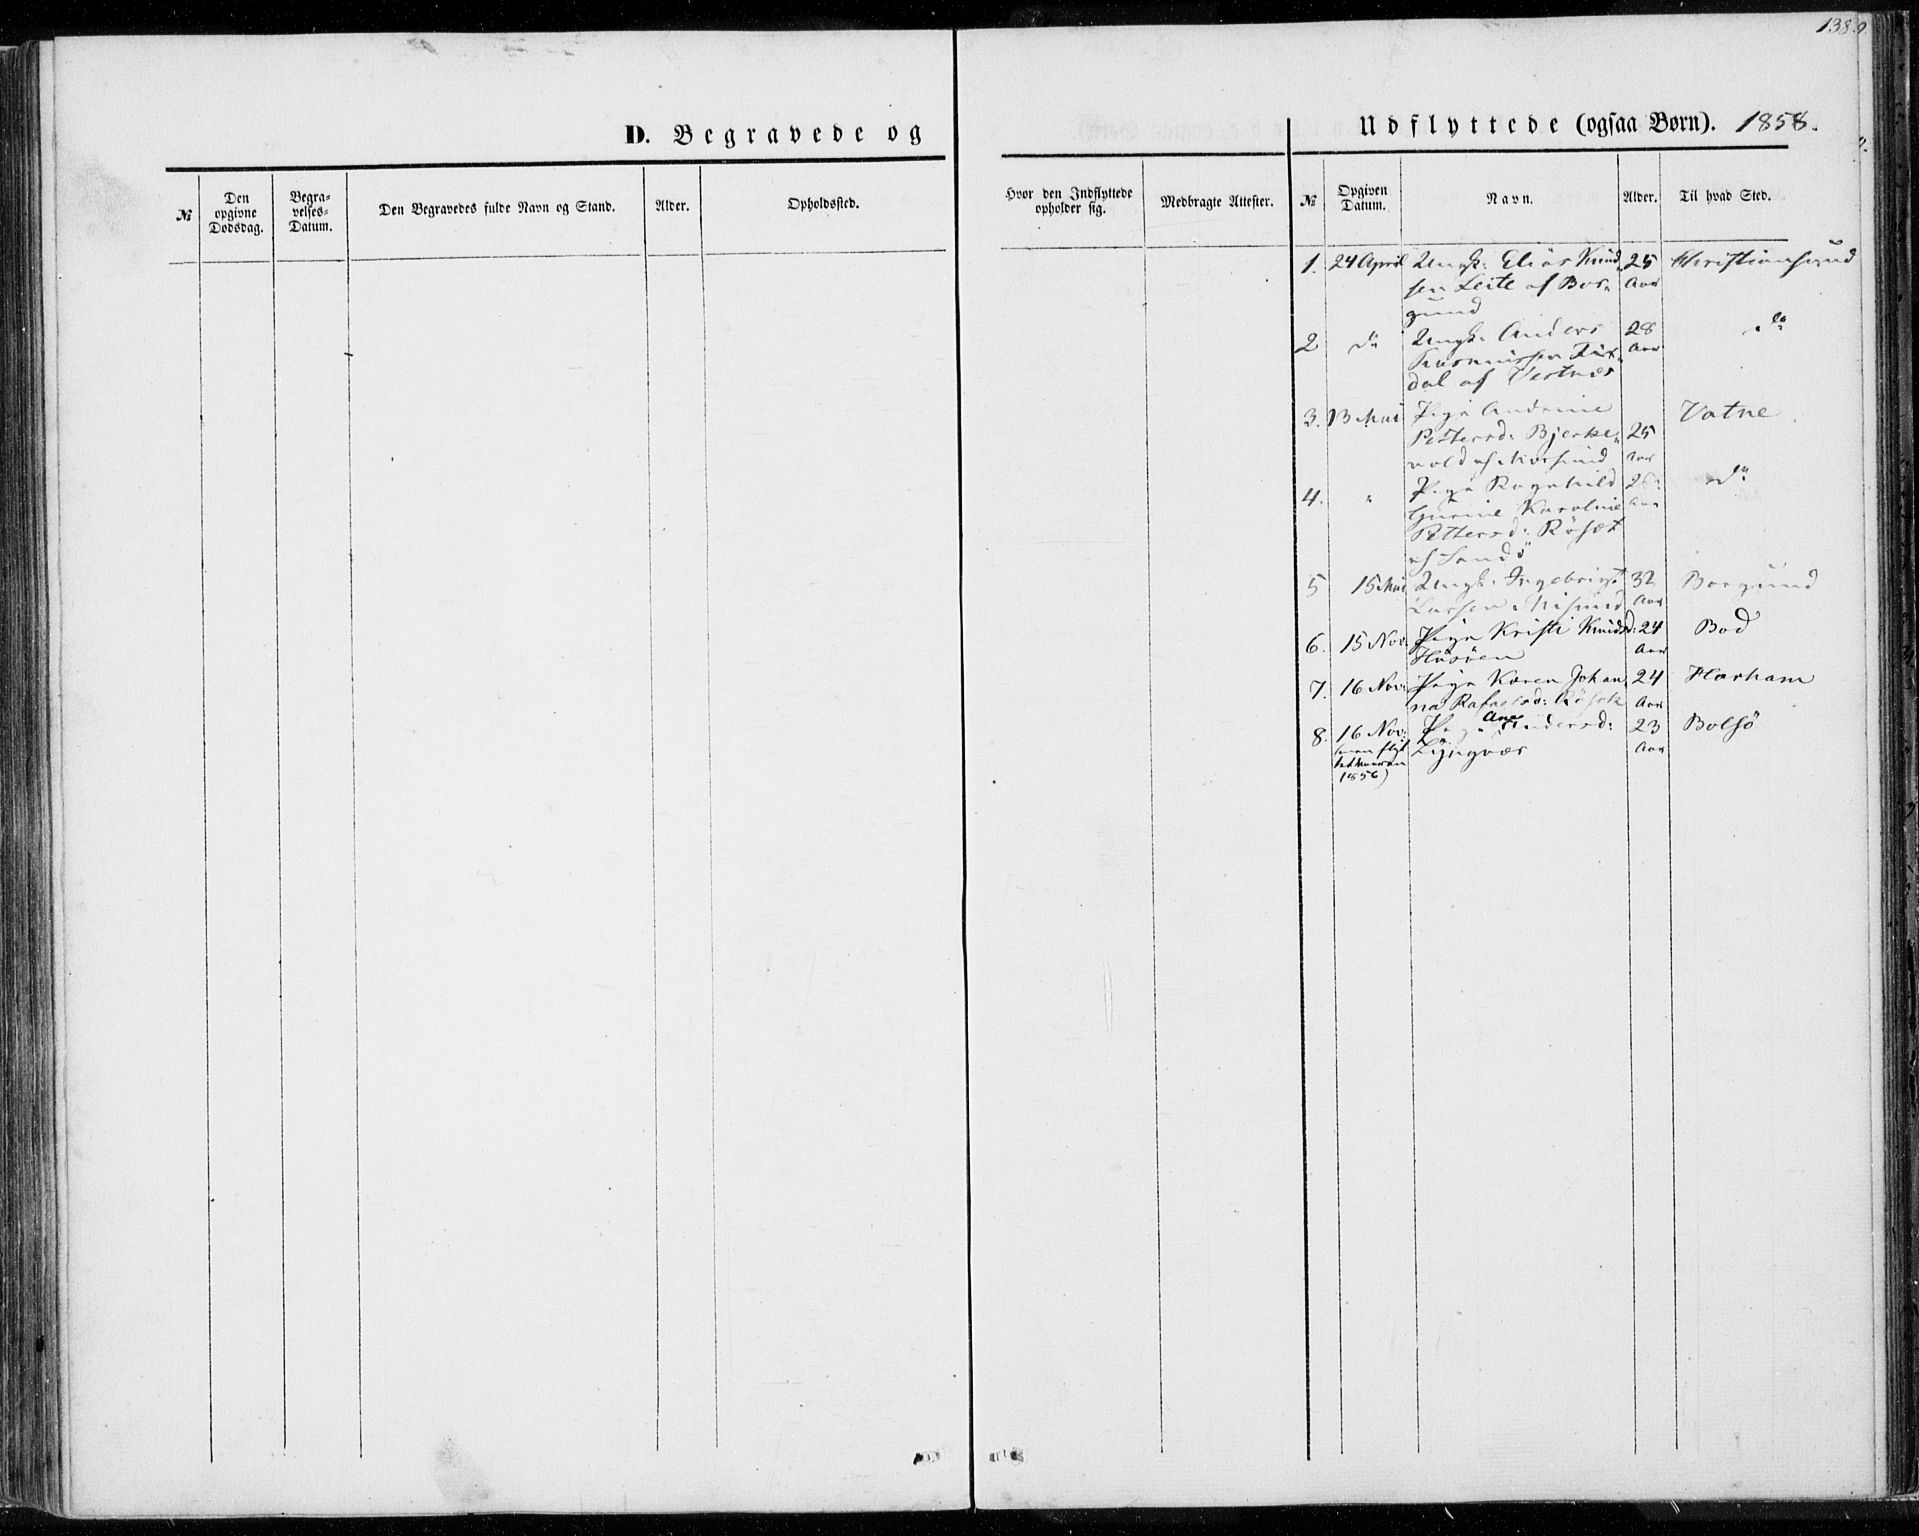 138.
D. Begravede og
Udflyttede (ogsaa Børn). 1858.
№
Den opgivne Dødsdag.
Begravelses-Datum.
Den Begravedes fulde Navn og Stand.
Alder.
Opholdssted.
Hvor den Indflyttede opholder sig.
Medbragte Attester.
№
Opgiven Datum.
Navn.
Alder.
Til hvad Sted.
1. 24 April Ungk: Elias Knud 25 Christiansund
sen Leite af Bor Aar
gund
2 do Ungk: Anders 28 do
Rasmussen Aar
dal af Vestnæs
3. 13 Mai Pige Andrine Vatne
Pettersd: Bjerke 25
vold af Aar
4. " Pige Ragnhild 26 do
Gurine Karoline Aar
Pettersd: Röset
af Sandö
5 15 Mai Ungk: Ingebrigt 32 Borgund
Larsen Misund Aar
6. 15 Nov: Pige Kristi Knudsd: 24 Bod
Husöen Aar
7. 16 Nov: Pige Karen Johan 24 Harham
na Rafaelsd: Röset Aar
8. 16 Nov: Pige Ane Andersd: 23 Bolsö
Lyngvær Aar
1856)